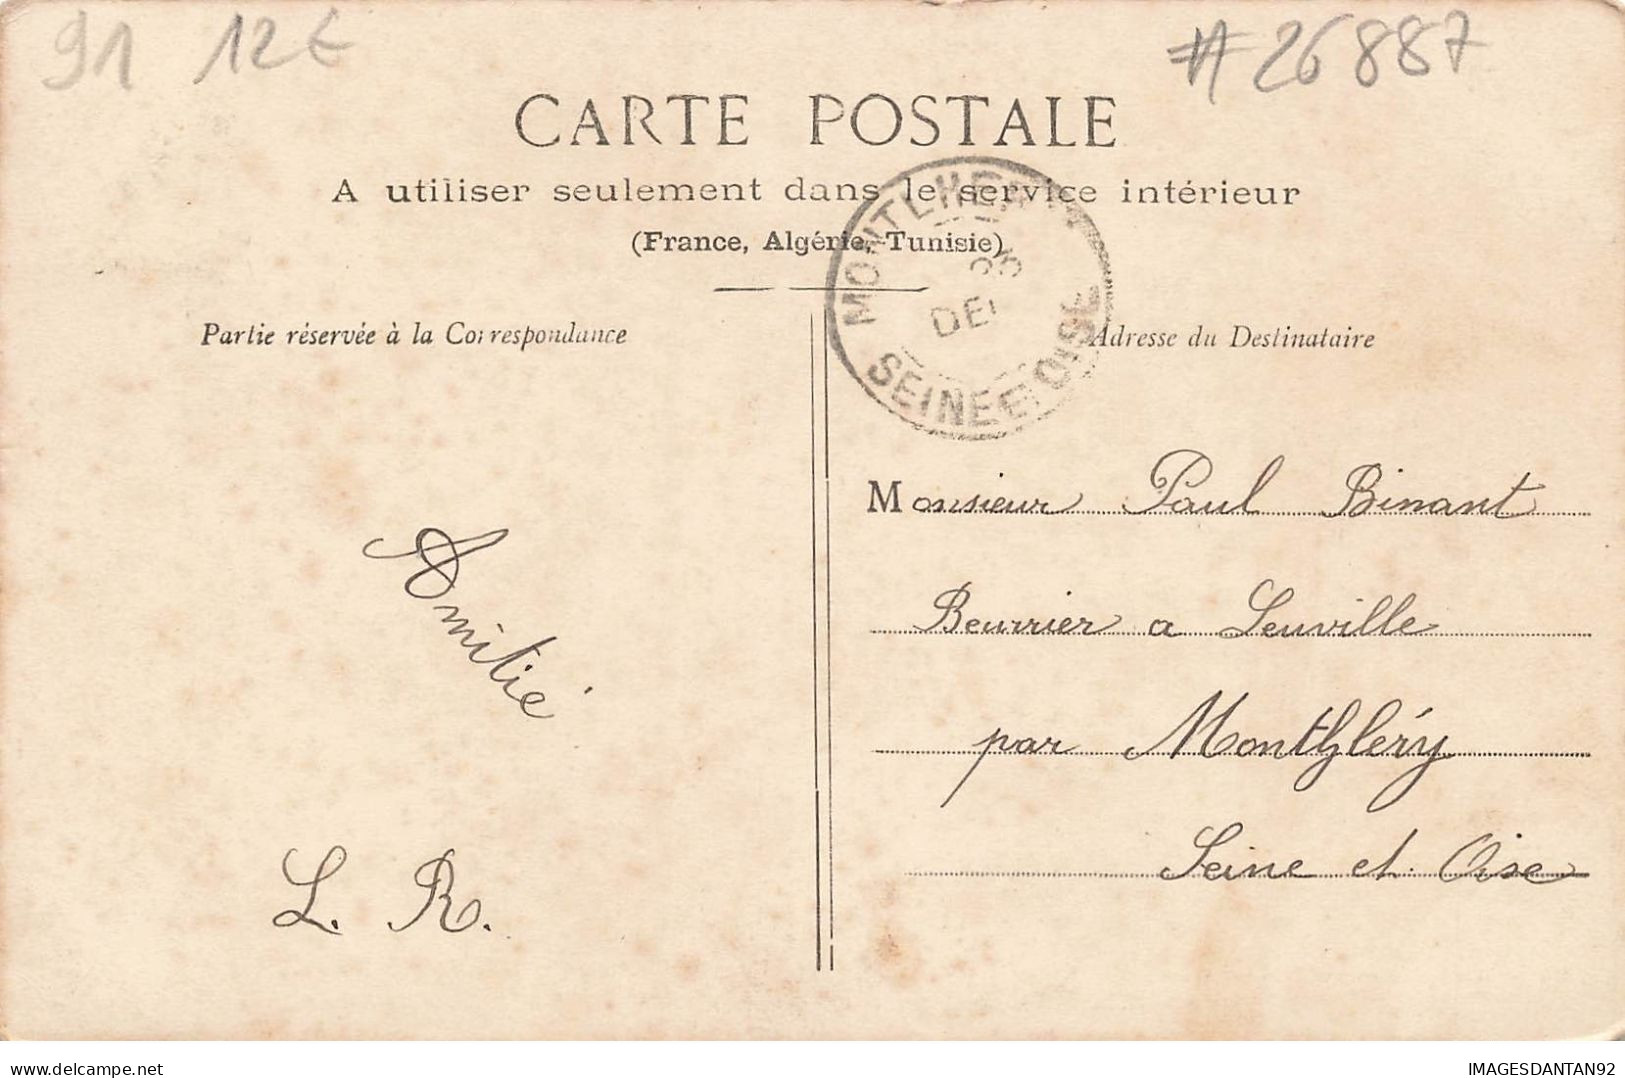 91 12€ #26887
CARTE POSTALE
A utiliser seulement dans le service intérieur
(France, Algérie, Tunisie)
MONTLHERY
25
DEC
SEINE ET OISE
Partie réservée à la Correspondance
Adresse du Destinataire
Amitié
L. R.
Monsieur Paul Binant
Beurrier a Leuville
par Monthléry
Seine et Oise
delcampe.net
IMAGESDANTAN92